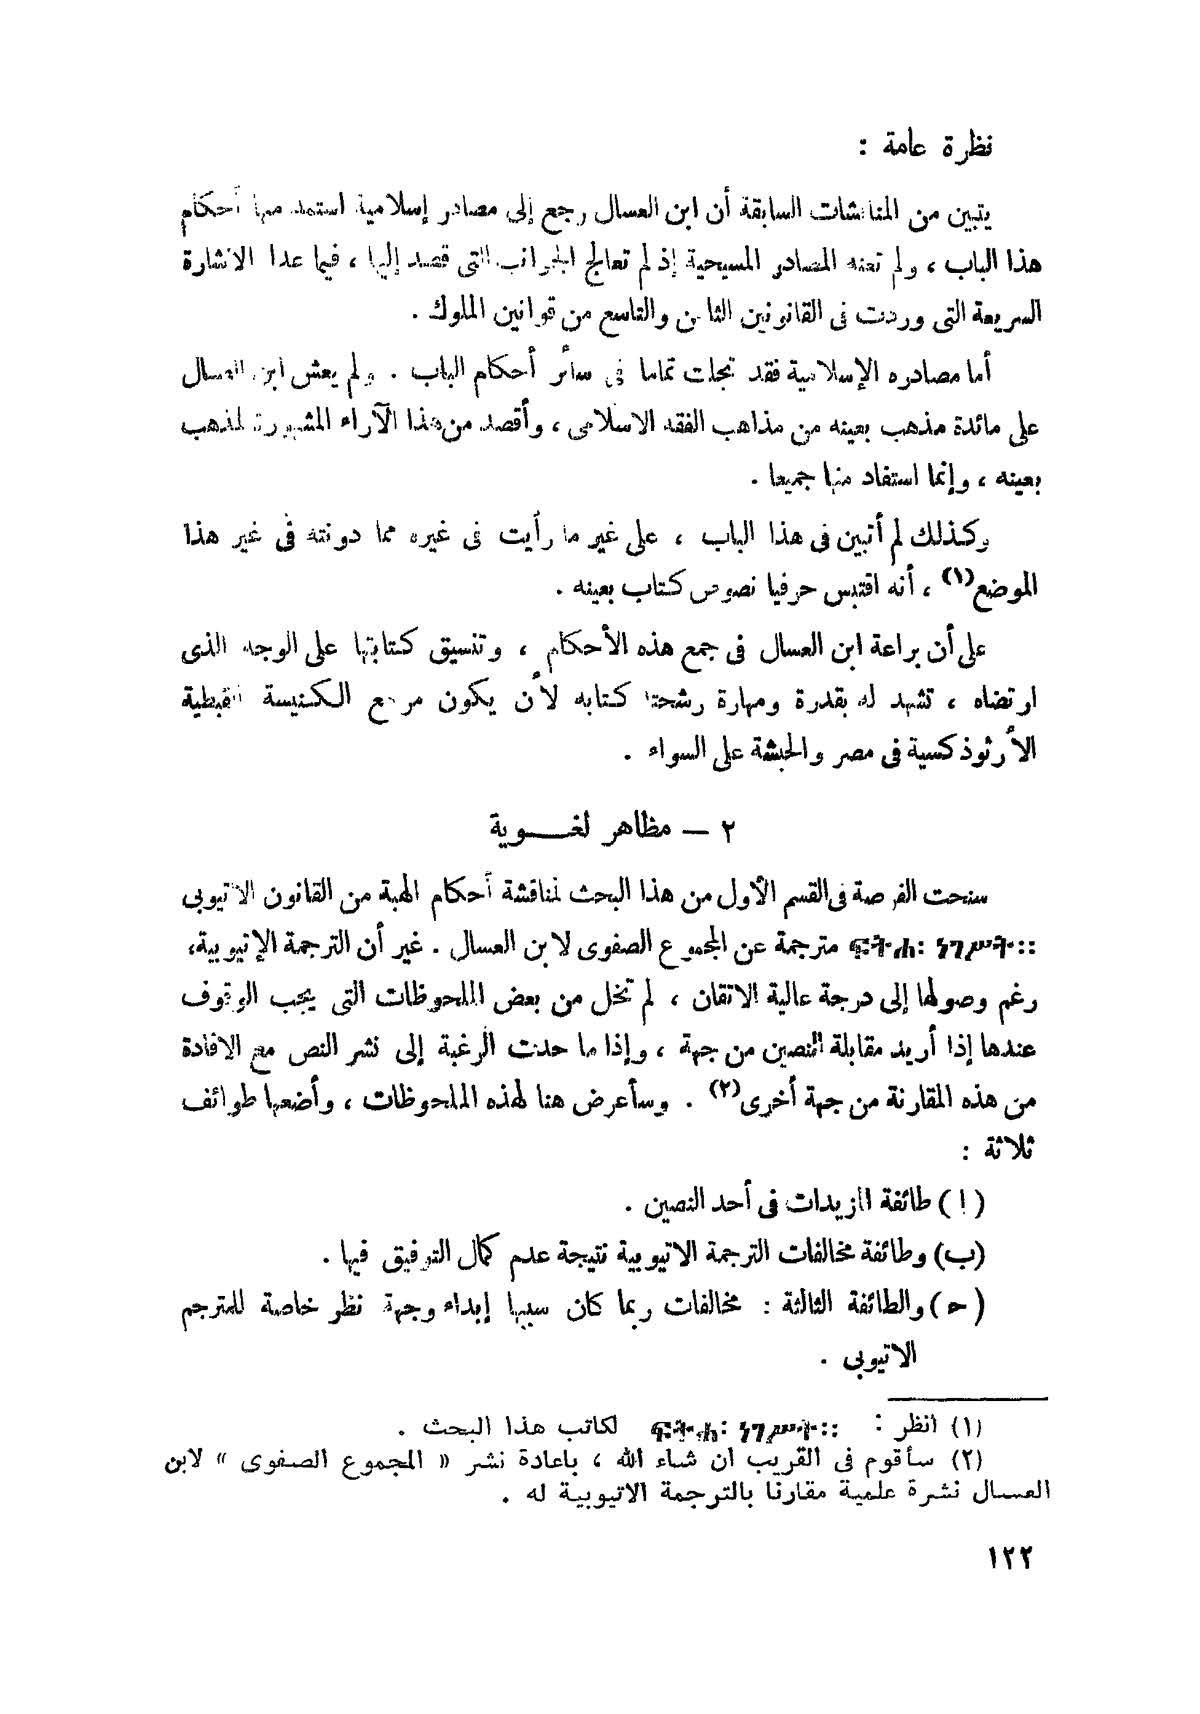 نظرة عامة :
يتبين من المناقشات السابقة أن ابن العسال رجع إلى مصادر إسلامية استمد منها أحكام
هذا الباب ، ولم تعنه المصادر المسيحية إذ لم تعالج الجوانب التى قصد إليها ، فيما عدا الاشارة
السريعة التى وردت فى القانونين الثامن والتاسع من قوانين الملوك .
أما مصادره الإسلامية فقد تجلت تماما فى سائر أحكام الباب . ولم يعش ابن العسال
على مائدة مذهب بعينه من مذاهب الفقه الاسلامى ، وأقصد من هذا الآراء المشهورة لمذهب
بعينه ، وإنما استفاد منها جميعا .
وكذلك لم أتبين فى هذا الباب ، على غير ما رأيت فى غيره مما دونته فى غير هذا
الموضع(١) ، أنه اقتبس حرفيا نصوص كتاب بعينه .
على أن براعة ابن العسال فى جمع هذه الأحكام ، وتنسيق كتابتها على الوجه الذى
ارتضاه ، تشهد له بقدرة ومهارة رشحتا كتابه لأن يكون مرجع الكنيسة القبطية
الأرثوذكسية فى مصر والحبشة على السواء .
٢ — مظاهر لغـــوية
سنحت الفرصة فى القسم الأول من هذا البحث لمناقشة أحكام الهبة من القانون الاتيوبى
ፍትሐ፡ ነገሥት፡፡ مترجمة عن المجموع الصفوى لابن العسال . غير أن الترجمة الإتيوبية،
رغم وصولها إلى درجة عالية الاتقان ، لم تخل من بعض الملحوظات التى يجب الوقوف
عندها إذا أريد مقابلة النصين من جهة ، وإذا ما حدت الرغبة إلى نشر النص مع الافادة
من هذه المقارنة من جهة أخرى(٢) . وسأعرض هنا لهذه الملحوظات ، وأضعها طوائف
ثلاثة :
( ا ) طائفة المزيدات فى أحد النصين .
(ب) وطائفة مخالفات الترجمة الاتيوبية نتيجة عدم كمال التوفيق فيها .
( ح ) والطائفة الثالثة : مخالفات ربما كان سببها إبداء وجهة نظر خاصة للمترجم
الاتيوبى .
(١) انظر : ፍትሐ፡ ነገሥት፡፡ لكاتب هذا البحث .
(٢) سأقوم فى القريب ان شاء الله ، باعادة نشر « المجموع الصفوى » لابن
العسال نشرة علمية مقارنا بالترجمة الاتيوبية له .
١٢٢